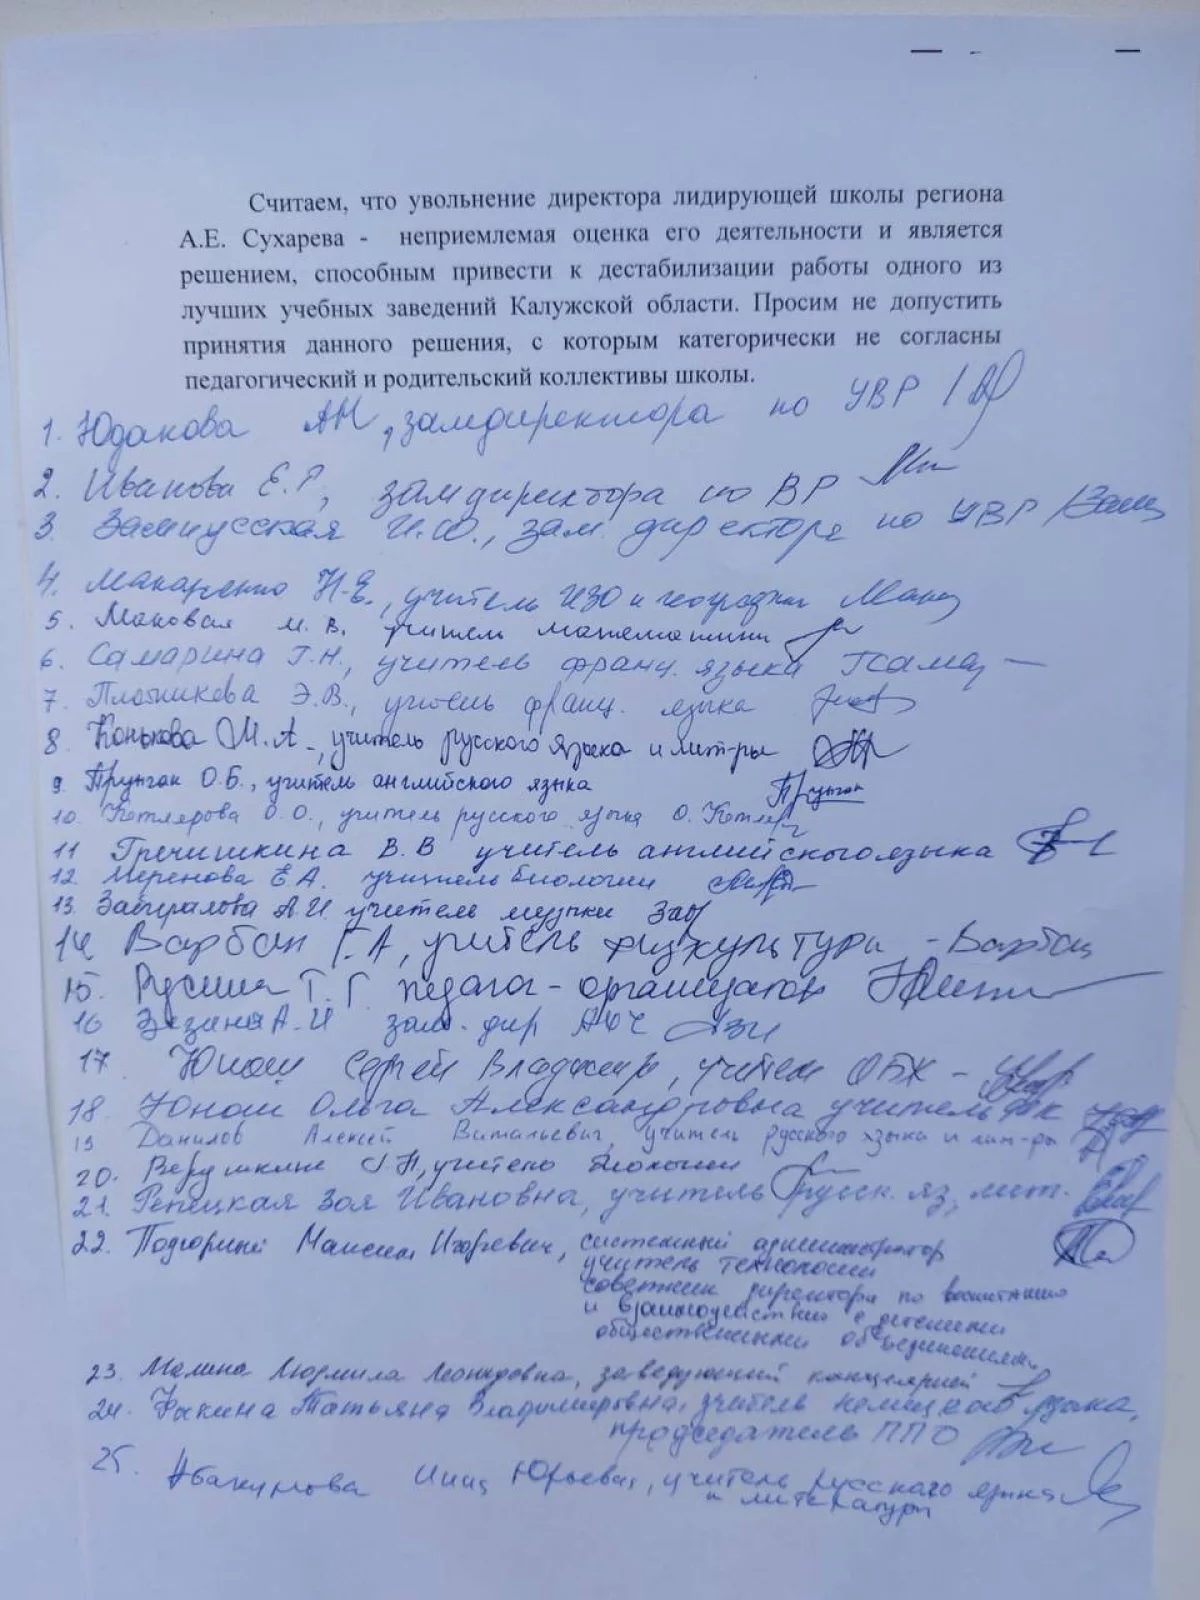 Считаем, что увольнение директора лидирующей школы региона
А.Е. Сухарева - неприемлемая оценка его деятельности и является
решением, способным привести к дестабилизации работы одного из
лучших учебных заведений Калужской области. Просим не допустить
принятия данного решения, с которым категорически не согласны
педагогический и родительский коллективы школы.
1. Юдакова АН, замдиректора по УВР /
2. Иванова Е.Г, замдиректора по ВР
3. И.Ю., зам. директора по УВР /
4. Макаренко Н.Е., учитель ИЗО и географии
5. Маковая М.В. учитель математики
6. Самарина Г.Н., учитель франц. языка
7. Плотникова Э.В., учитель франц. языка
8. Конькова М.А., учитель русского языка и лит-ры
9. О.Б., учитель английского языка
10. Котлярова О.О., учитель русского языка О. Котляр
11 Гречишкина В.В учитель английского языка
12. Меренова Е.А. учитель биологии
13. А.И. учитель музыки
14 Варбан Г.А, учитель физкультуры - Варбан
15. Г.Г. педагог-организатор
16 А.И зам. дир АХЧ
17 Юнош Сергей Владимир, учитель ОБЖ -
18. Юнош Ольга Александровна учитель
19 Данилов Алексей Витальевич, учитель русского языка и лит-ры
20. учитель биологии
21. Репецкая Зоя Ивановна, учитель русск. яз, лит.
22. Подгорный Максим Игоревич, системный администратор
учитель технологии
советник директора по воспитанию
и взаимодействию с детскими
общественными объединениями
23. Малина Людмила Леонидовна, заведующий канцелярией
24. Татьяна Владимировна, учитель немецкого языка,
председатель ППО
25. Абакумова Инна Юрьевна, учитель русского языка
и литературы